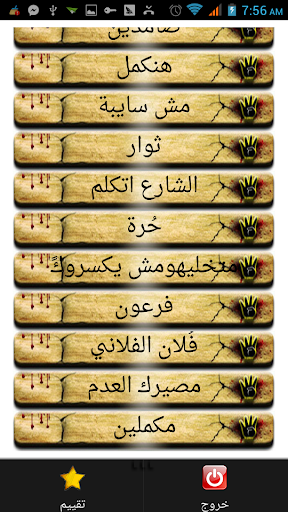 7:56 AM
صامدين
هنكمل
مش سايبة
ثوار
الشارع اتكلم
حُرة
متخليهومش يكسروكً
فرعون
فُلان الفلاني
مصيرك العدم
مكملين
تقييم
خروج